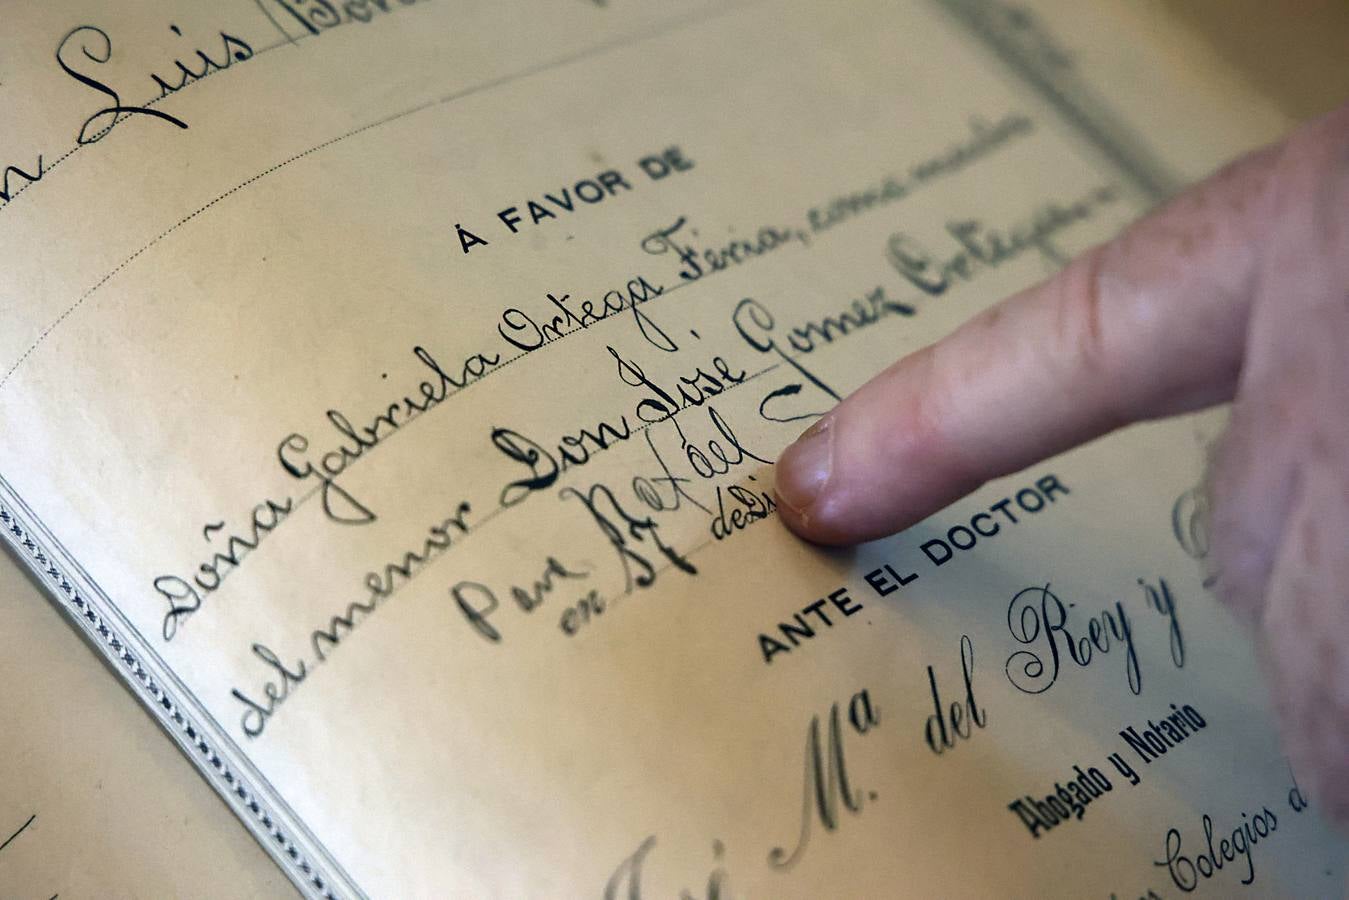 n Luis
Á FAVOR DE
Doña Gabriela Ortega Feria, como madre
del menor Don José Gomez Ortega
Para Rafael
en de Di
ANTE EL DOCTOR
Mª del Rey y
Abogado y Notario
Colegios d